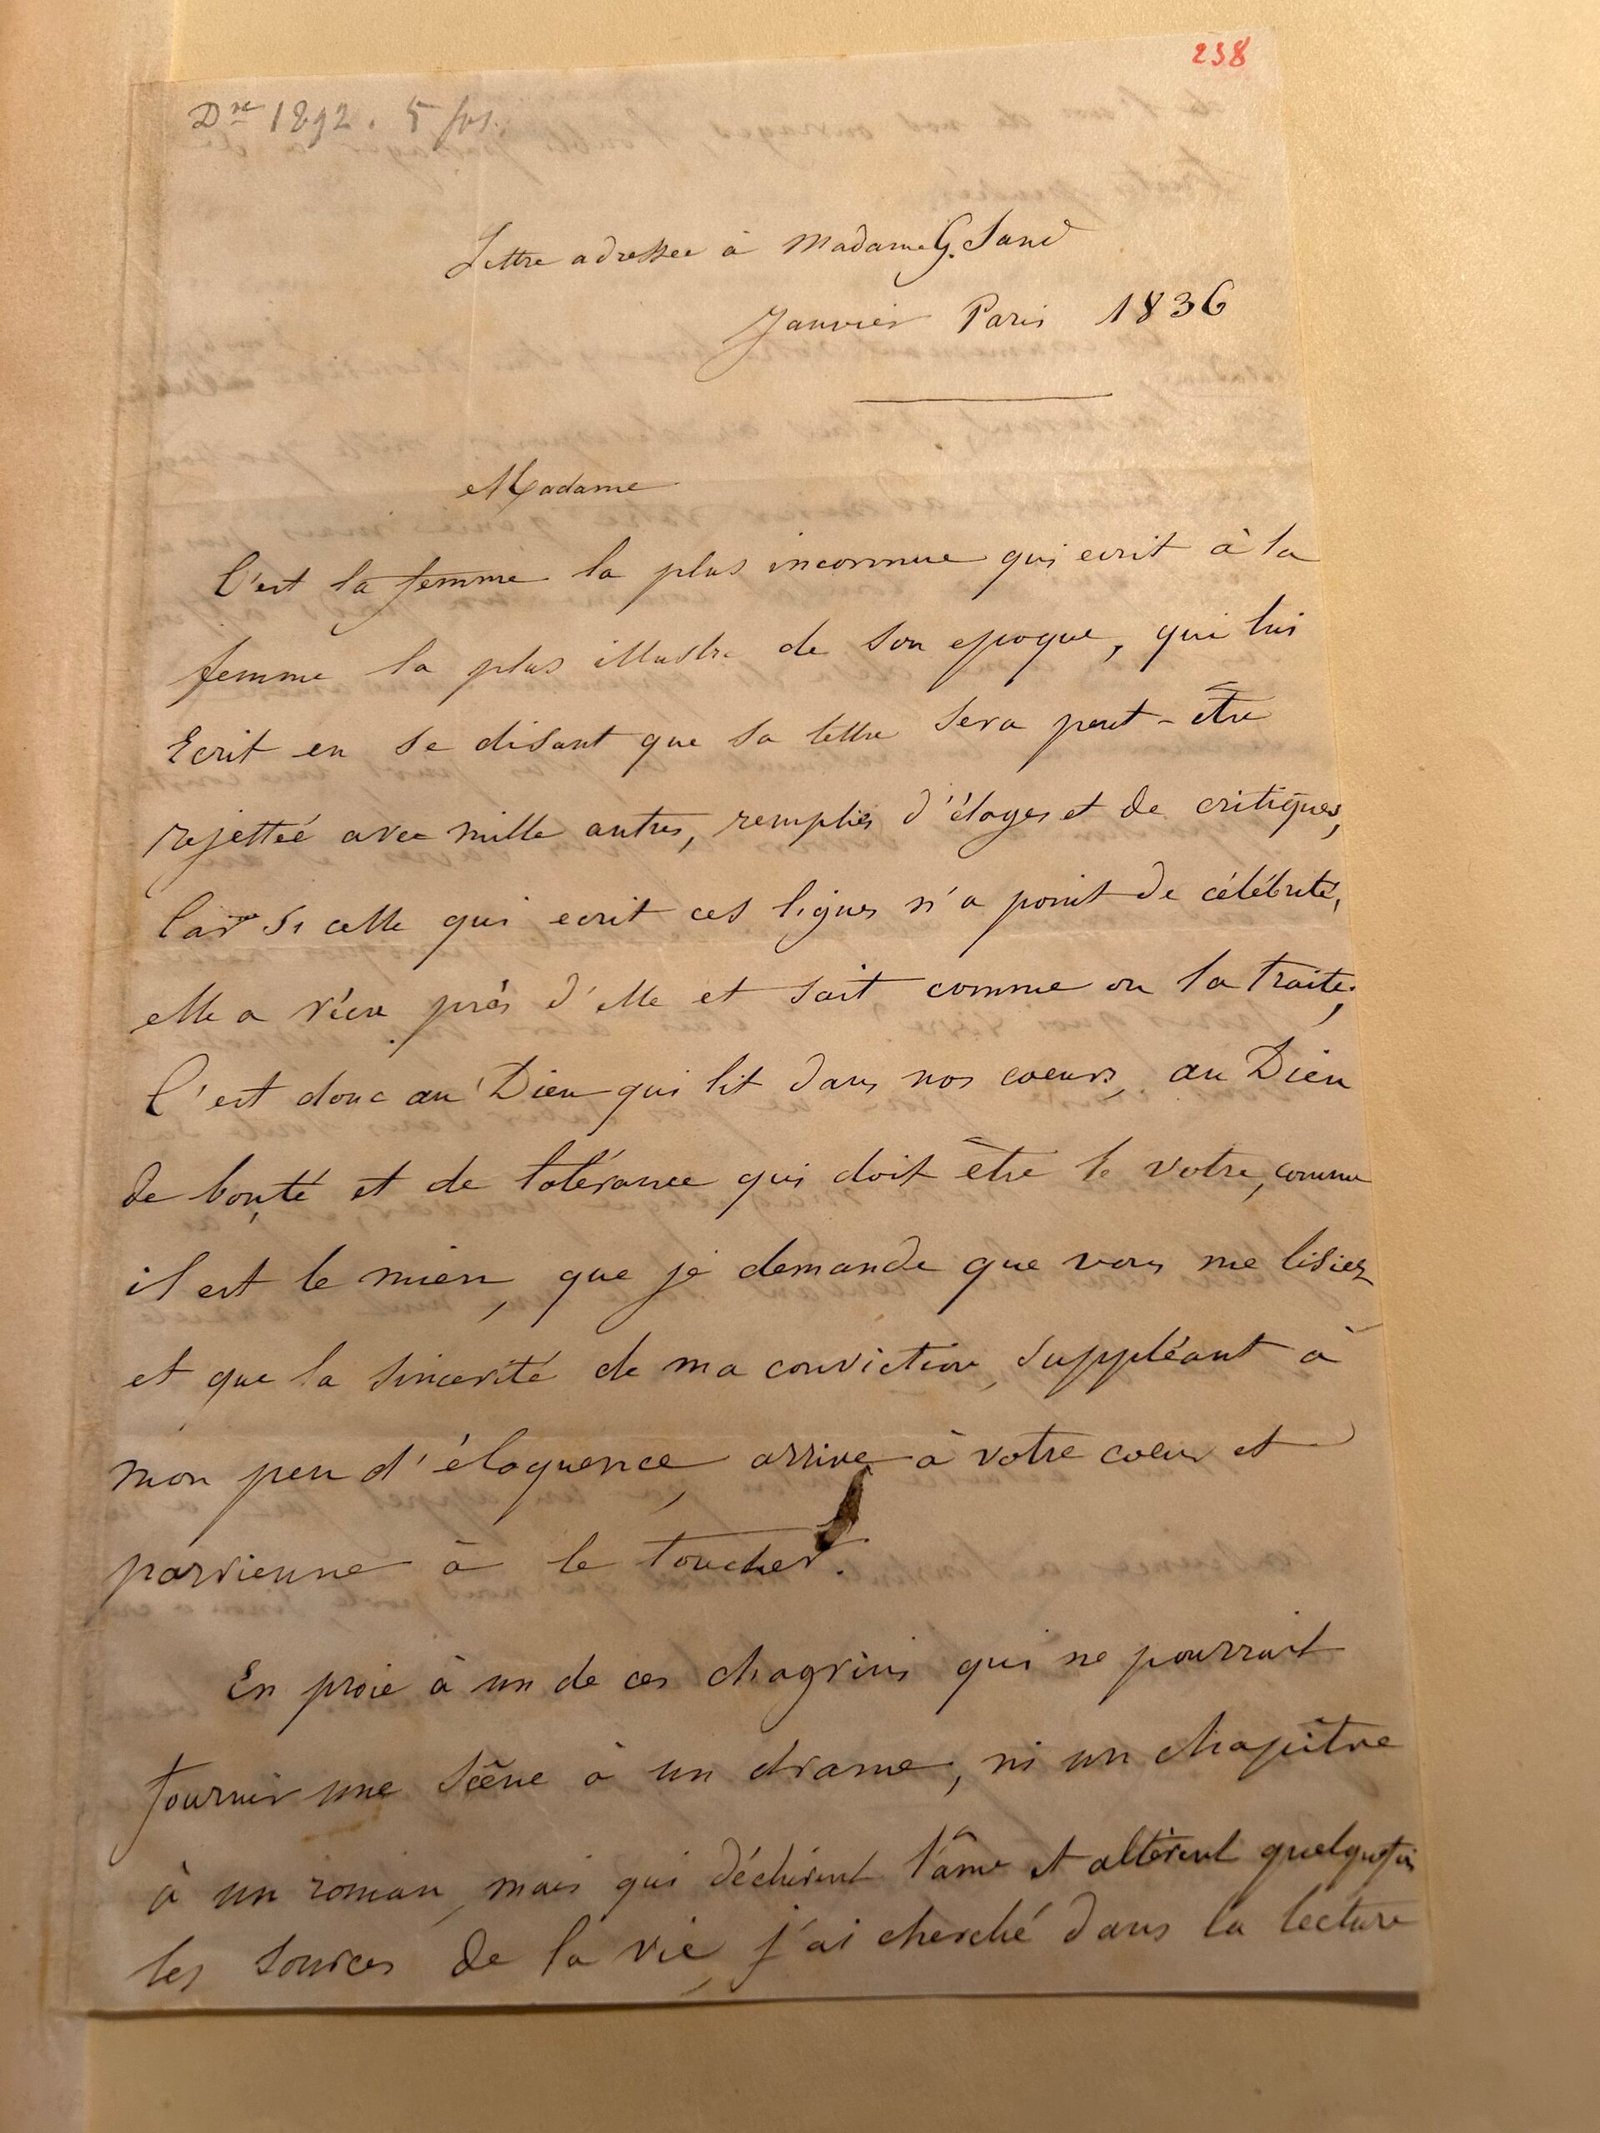 238
Dne 1892. 5 fol.
Lettre adressee à Madame G. Sand
Janvier Paris 1836
Madame
C'est la femme la plus inconnue qui ecrit à la
femme la plus illustre de son epoque, qui lui
Ecrit en se disant que sa lettre sera peut-être
rejettée avec mille autres, remplies d'éloges et de critiques,
Car si celle qui ecrit ces lignes n'a point de célébrité,
elle a vécu près d'elle et sait comme on la traite;
C'est donc au Dieu qui lit dans nos coeurs, au Dieu
de bonté et de tolérance qui doit être le votre, comme
il est le mien, que je demande que vous me lisiez
et que la sincerité de ma conviction, suppléant à
mon peu d'éloquence, arrive à votre coeur et
parvienne à le toucher.
En proie à un de ces chagrins qui ne pourrait
fournir une scène à un drame, ni un chapître
à un roman, mais qui déchirent l'âme et altèrent quelquefois
les sources de la vie, j'ai cherché dans la lecture